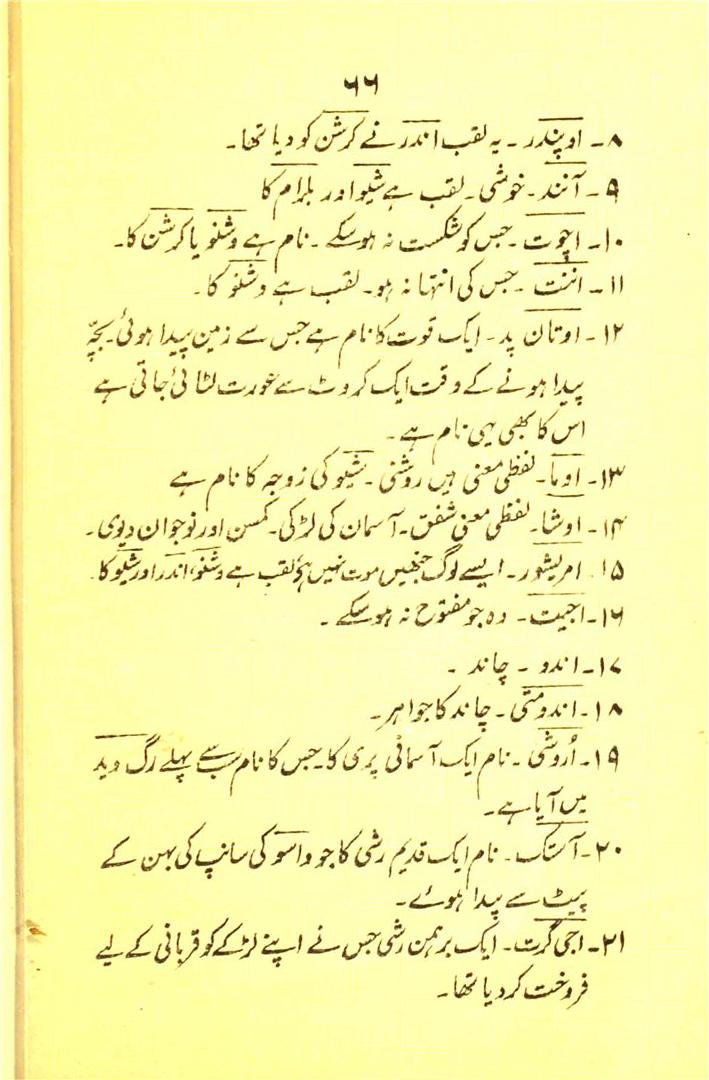 ۶۶
۸۔ اوپندر۔ یہ لقب اندر نے کرشن کو دیا تھا۔
۹۔ آنند۔ خوشی۔ لقب ہے شیو اور بلرام کا
۱۰۔ اچوت۔ جس کو شکست نہ ہو سکے۔ نام ہے وشنو یا کرشن کا۔
۱۱۔ اننت۔ جس کی انتہا نہ ہو۔ لقب ہے وشنو کا۔
۱۲۔ اوتان پد۔ ایک قوت کا نام ہے جس سے زمین پیدا ہوئی۔ بچّہ
پیدا ہونے کے وقت ایک کروٹ سے عورت لٹائی جاتی ہے
اس کا بھی یہی نام ہے۔
۱۳۔ اوما۔ لفظی معنی ہیں روشنی۔ شیو کی زوجہ کا نام ہے
۱۴۔ اوشا۔ لفظی معنی شفق۔ آسمان کی لڑکی۔ کمسن اور نوجوان دیوی۔
۱۵۔ امریشور۔ ایسے لوگ جنھیں موت نہیں ہے، لقب ہے وشنو، اندر اور شیو کا۔
۱۶۔ اجیت۔ وہ جو مفتوح نہ ہو سکے۔
۱۷۔ اندو۔ چاند۔
۱۸۔ اندومتی۔ چاند کا جواہر۔
۱۹۔ اُروشی۔ نام ایک آسمانی پری کا۔ جس کا نام سب سے پہلے رگ وید
میں آیا ہے۔
۲۰۔ آستک۔ نام ایک قدیم رشی کا جو واسو کی سانپ کی بہن کے
پیٹ سے پیدا ہوئے۔
۲۱۔ اجی گرت۔ ایک برہمن رشی جس نے اپنے لڑکے کو قربانی کے لیے
فروخت کر دیا تھا۔